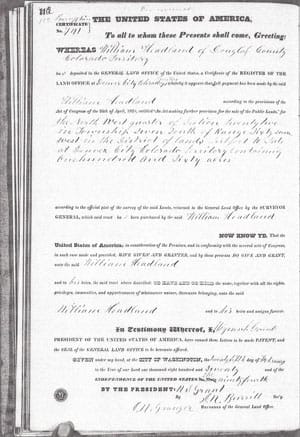 CERTIFICATE
No. 791
THE UNITED STATES OF AMERICA,
To all to whom these Presents shall come, Greeting:
WHEREAS William Headland of Douglas County
Colorado Territory
ha deposited in the GENERAL LAND OFFICE of the United States, a Certificate of the REGISTER OF THE
LAND OFFICE at Denver City whereby it appears that full payment has been made by the said
William Headland according to the provisions of the
Act of Congress of the 24th of April, 1820, entitled "An Act making further provision for the sale of the Public Lands," for
the North West quarter of Section Twenty five
in Township Seven South of Range Sixty seven
west in the District of lands subject to sale
at Denver City Colorado Territory containing
One hundred and Sixty acres
according to the official plat of the survey of the said Lands, returned to the General Land Office by the SURVEYOR
GENERAL, which said tract has been purchased by the said William Headland
NOW KNOW YE, That the
United States of America, in consideration of the Premises, and in conformity with the several acts of Congress,
in such case made and provided, HAVE GIVEN AND GRANTED, and by these presents DO GIVE AND GRANT,
unto the said William Headland
and to his heirs, the said tract above described: TO HAVE AND TO HOLD the same, together with all the rights,
privileges, immunities, and appurtenances of whatsoever nature, thereunto belonging, unto the said
William Headland and to his heirs and assigns forever.
In Testimony Whereof, I, Ulysses S. Grant
PRESIDENT OF THE UNITED STATES OF AMERICA, have caused these Letters to be made PATENT, and
the SEAL of the GENERAL LAND OFFICE to be hereunto affixed.
GIVEN under my hand, at the CITY OF WASHINGTON, the day of February
in the Year of our Lord one thousand eight hundred and Seventy and of the
INDEPENDENCE OF THE UNITED STATES the Ninety fourth
BY THE PRESIDENT: U. S. Grant
By Sec'y.
Recorder of the General Land Office.